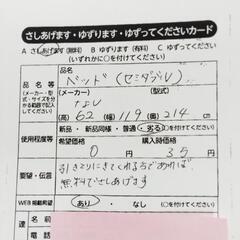 さしあげます・ゆずります・ゆずってくださいカード
A さしあげます（無料） B ゆずります（有料） C ゆずってください
（いずれかに○を付けてください）
品名等
（メーカー・型式・サイズを分かる範囲で記入してください）
品名
ベッド（セミダブル）
（メーカー） （型式）
なし
高 62 幅 119 奥 214 cm
使用程度等
新品・新品同様・普通・劣る
希望価格 購入時価格
0 円 35
要望・伝言
引きとりにきてくれる方であれば
無料でさしあげます
WEB掲載希望 あり ・ なし （○を付けてください）